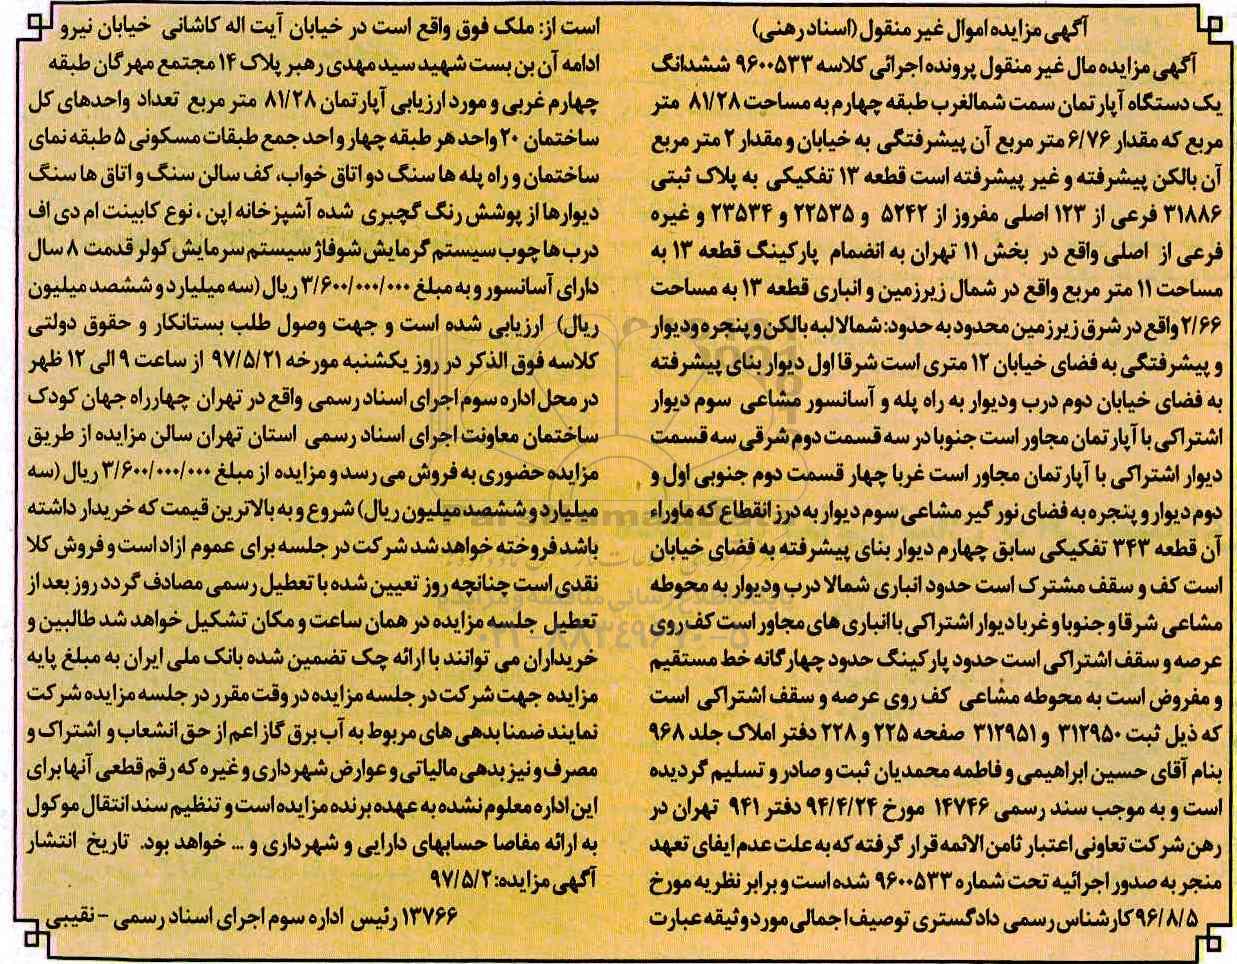 آگهی مزایده اموال غیر منقول (اسناد رهنی)
آگهی مزایده مال غیر منقول پرونده اجرائی کلاسه ۹۶۰۰۵۳۳ ششدانگ
یک دستگاه آپارتمان سمت شمالغرب طبقه چهارم به مساحت ۸۱/۲۸ متر
مربع که مقدار ۶/۷۶ متر مربع آن پیشرفتگی به خیابان و مقدار ۲ متر مربع
آن بالکن پیشرفته و غیر پیشرفته است قطعه ۱۳ تفکیکی به پلاک ثبتی
۳۱۸۸۶ فرعی از ۱۲۳ اصلی مفروز از ۵۲۴۲ و ۲۲۵۳۵ و ۲۳۵۳۴ و غیره
فرعی از اصلی واقع در بخش ۱۱ تهران به انضمام پارکینگ قطعه ۱۳ به
مساحت ۱۱ متر مربع واقع در شمال زیرزمین و انباری قطعه ۱۳ به مساحت
۲/۶۶ واقع در شرق زیرزمین محدود به حدود: شمالا لبه بالکن و پنجره ودیوار
و پیشرفتگی به فضای خیابان ۱۲ متری است شرقا اول دیوار بنای پیشرفته
به فضای خیابان دوم درب ودیوار به راه پله و آسانسور مشاعی سوم دیوار
اشتراکی با آپارتمان مجاور است جنوبا در سه قسمت دوم شرقی سه قسمت
دیوار اشتراکی با آپارتمان مجاور است غربا چهار قسمت دوم جنوبی اول و
دوم دیوار و پنجره به فضای نورگیر مشاعی سوم دیوار به درز انقطاع که ماوراء
آن قطعه ۳۴۳ تفکیکی سابق چهارم دیوار بنای پیشرفته به فضای خیابان
است کف و سقف مشترک است حدود انباری شمالا درب ودیوار به محوطه
مشاعی شرقا و جنوبا و غربا دیوار اشتراکی با انباری های مجاور است کف روی
عرصه و سقف اشتراکی است حدود پارکینگ حدود چهارگانه خط مستقیم
و مفروض است به محوطه مشاعی کف روی عرصه و سقف اشتراکی است
که ذیل ثبت ۳۱۲۹۵۰ و ۳۱۲۹۵۱ صفحه ۲۲۵ و ۲۲۸ دفتر املاک جلد ۹۶۸
بنام آقای حسین ابراهیمی و فاطمه محمدیان ثبت و صادر و تسلیم گردیده
است و به موجب سند رسمی ۱۴۷۴۶ مورخ ۹۴/۴/۲۴ دفتر ۹۴۱ تهران در
رهن شرکت تعاونی اعتبار ثامن الائمه قرار گرفته که به علت عدم ایفای تعهد
منجر به صدور اجرائیه تحت شماره ۹۶۰۰۵۳۳ شده است و برابر نظریه مورخ
۹۶/۸/۵ کارشناس رسمی دادگستری توصیف اجمالی مورد وثیقه عبارت
است از: ملک فوق واقع است در خیابان آیت اله کاشانی خیابان نیرو
ادامه آن بن بست شهید سید مهدی رهبر پلاک ۱۴ مجتمع مهرگان طبقه
چهارم غربی و مورد ارزیابی آپارتمان ۸۱/۲۸ متر مربع تعداد واحدهای کل
ساختمان ۲۰ واحد هر طبقه چهار واحد جمع طبقات مسکونی ۵ طبقه نمای
ساختمان و راه پله ها سنگ دو اتاق خواب، کف سالن سنگ و اتاق ها سنگ
دیوارها از پوشش رنگ گچبری شده آشپزخانه اپن ، نوع کابینت ام دی اف
درب ها چوب سیستم گرمایش شوفاژ سیستم سرمایش کولر قدمت ۸ سال
دارای آسانسور و به مبلغ ۳/۶۰۰/۰۰۰/۰۰۰ ریال (سه میلیارد و ششصد میلیون
ریال) ارزیابی شده است و جهت وصول طلب بستانکار و حقوق دولتی
کلاسه فوق الذکر در روز یکشنبه مورخه ۹۷/۵/۲۱ از ساعت ۹ الی ۱۲ ظهر
در محل اداره سوم اجرای اسناد رسمی واقع در تهران چهارراه جهان کودک
ساختمان معاونت اجرای اسناد رسمی استان تهران سالن مزایده از طریق
مزایده حضوری به فروش می رسد و مزایده از مبلغ ۳/۶۰۰/۰۰۰/۰۰۰ ریال (سه
میلیارد و ششصد میلیون ریال) شروع و به بالاترین قیمت که خریدار داشته
باشد فروخته خواهد شد شرکت در جلسه برای عموم ازاد است و فروش کلا
نقدی است چنانچه روز تعیین شده با تعطیل رسمی مصادف گردد روز بعد از
تعطیل جلسه مزایده در همان ساعت و مکان تشکیل خواهد شد طالبین و
خریداران می توانند با ارائه چک تضمین شده بانک ملی ایران به مبلغ پایه
مزایده جهت شرکت در جلسه مزایده در وقت مقرر در جلسه مزایده شرکت
نمایند ضمنا بدهی های مربوط به آب برق گاز اعم از حق انشعاب و اشتراک و
مصرف و نیز بدهی مالیاتی و عوارض شهرداری و غیره که رقم قطعی آنها برای
این اداره معلوم نشده به عهده برنده مزایده است و تنظیم سند انتقال موکول
به ارائه مفاصا حسابهای دارایی و شهرداری و ... خواهد بود. تاریخ انتشار
آگهی مزایده: ۹۷/۵/۲
۱۳۷۶۶ رئیس اداره سوم اجرای اسناد رسمی - نقیبی